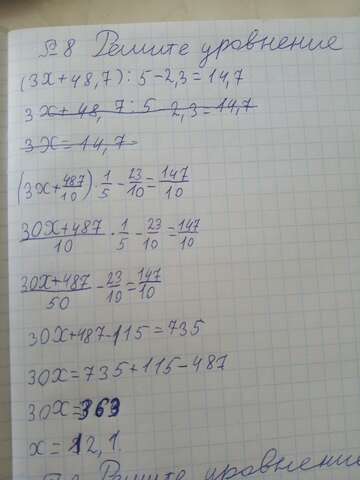 №8 Решите уровнение
(3x+48,7):5-2,3=14,7
3x+48,7:5-2,3=14,7
3x=14,7
(3x+487/10)·1/5-23/10=147/10
30x+487/10·1/5-23/10=147/10
30x+487/50-23/10=147/10
30x+487-115=735
30x=735+115-487
30x=363
x=12,1
Решите уровнение